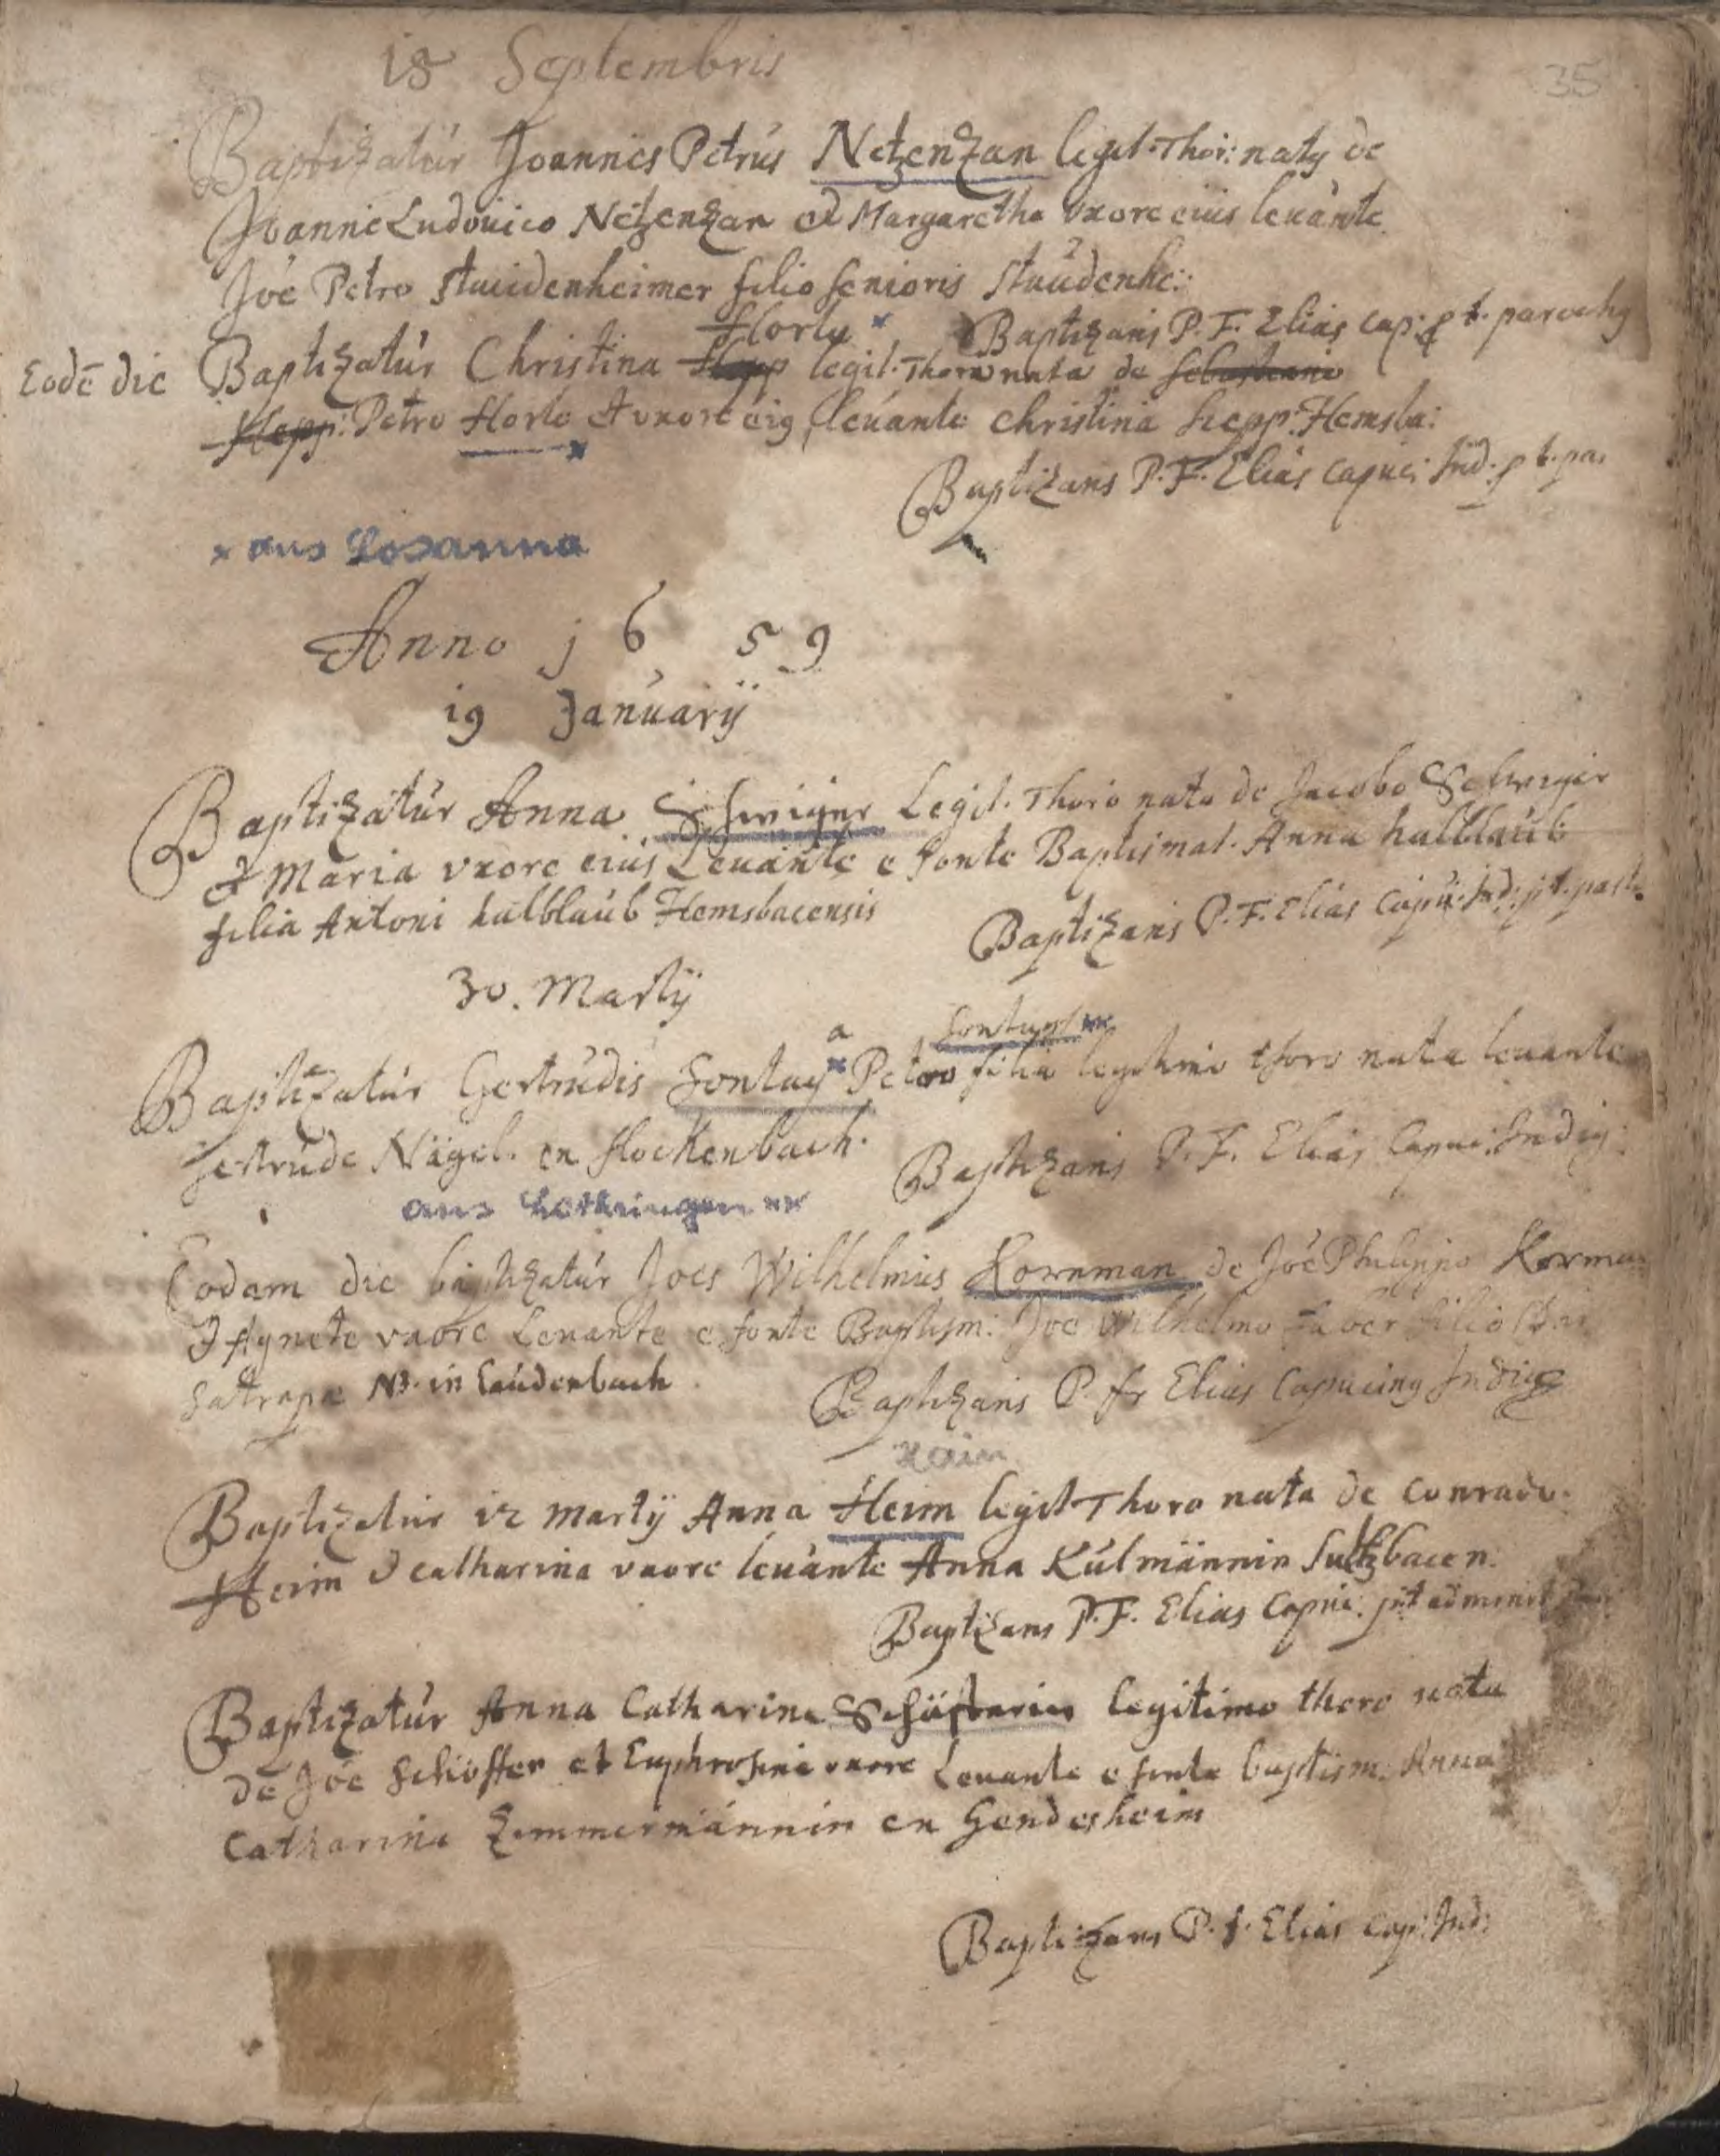 35
18 Septembris
Baptizatur Joannes Petrus Netzenzan legit. Thor: naty de
Joanne Ludouico Netzenzan et Margaretha vxore eius leuante
Joe Petro Stauidenheimer filio senioris Staudenhe:
Baptizans P. F. Elias Cap: p t. parochy
Horle
Eodē die Baptizatur Christina Hepp legit. Thoro nata de Sebastiano
Hepp: Petro Horle et vxore eig leuante Christina Hepp: Hemsba:
Baptizans P. F. Elias Capuc: Ind: p t. pa.
x aus Losanna
Anno j 6 5 9
19 Januarij
Baptizatur Anna Schwiger Legit. Thoro nata de Jacobo Schwiger
et Maria vxore eius Leuante e fonte Baptismat. Anna halblaub
filia Antoni halblaub Hemsbacensis
Baptizans P. F. Elias Capu: Ind: p t. past.
30. Martij
a
Baptizatur Gertrudis Fontay x Petro filia legitimo thoro nata leuante
Gertrude Nägel. en flockenbach.
Baptizans P. F. Elias Capuc: Indig:
aus Lothringen xx
Eodem die baptizatur Joes Wilhelmus Kornman de Joe Philippo Korman
et Agnete vxore Leuante e fonte Baptism: Joe Wilhelmo Faber filio
Satrapæ in Laudenbach
Baptizans P. fr Elias Capuciny Indig
Haim
Baptizatur 12 Martij Anna Heim legit Thoro nata de Conrado
Heim et Catharina vxore leuante Anna Kulmännin Sultzbacen.
Baptizans P. F. Elias Capuc: pt administ
Baptizatur Anna Catharina Schäfferin legitimo thoro nata
de Joe Schöffer et Euphrosina vxore Leuante e fonte baptism: Anna
Catharina Zimmermännin en Gendesheim
Baptizans P. f. Elias Cap: Ind: